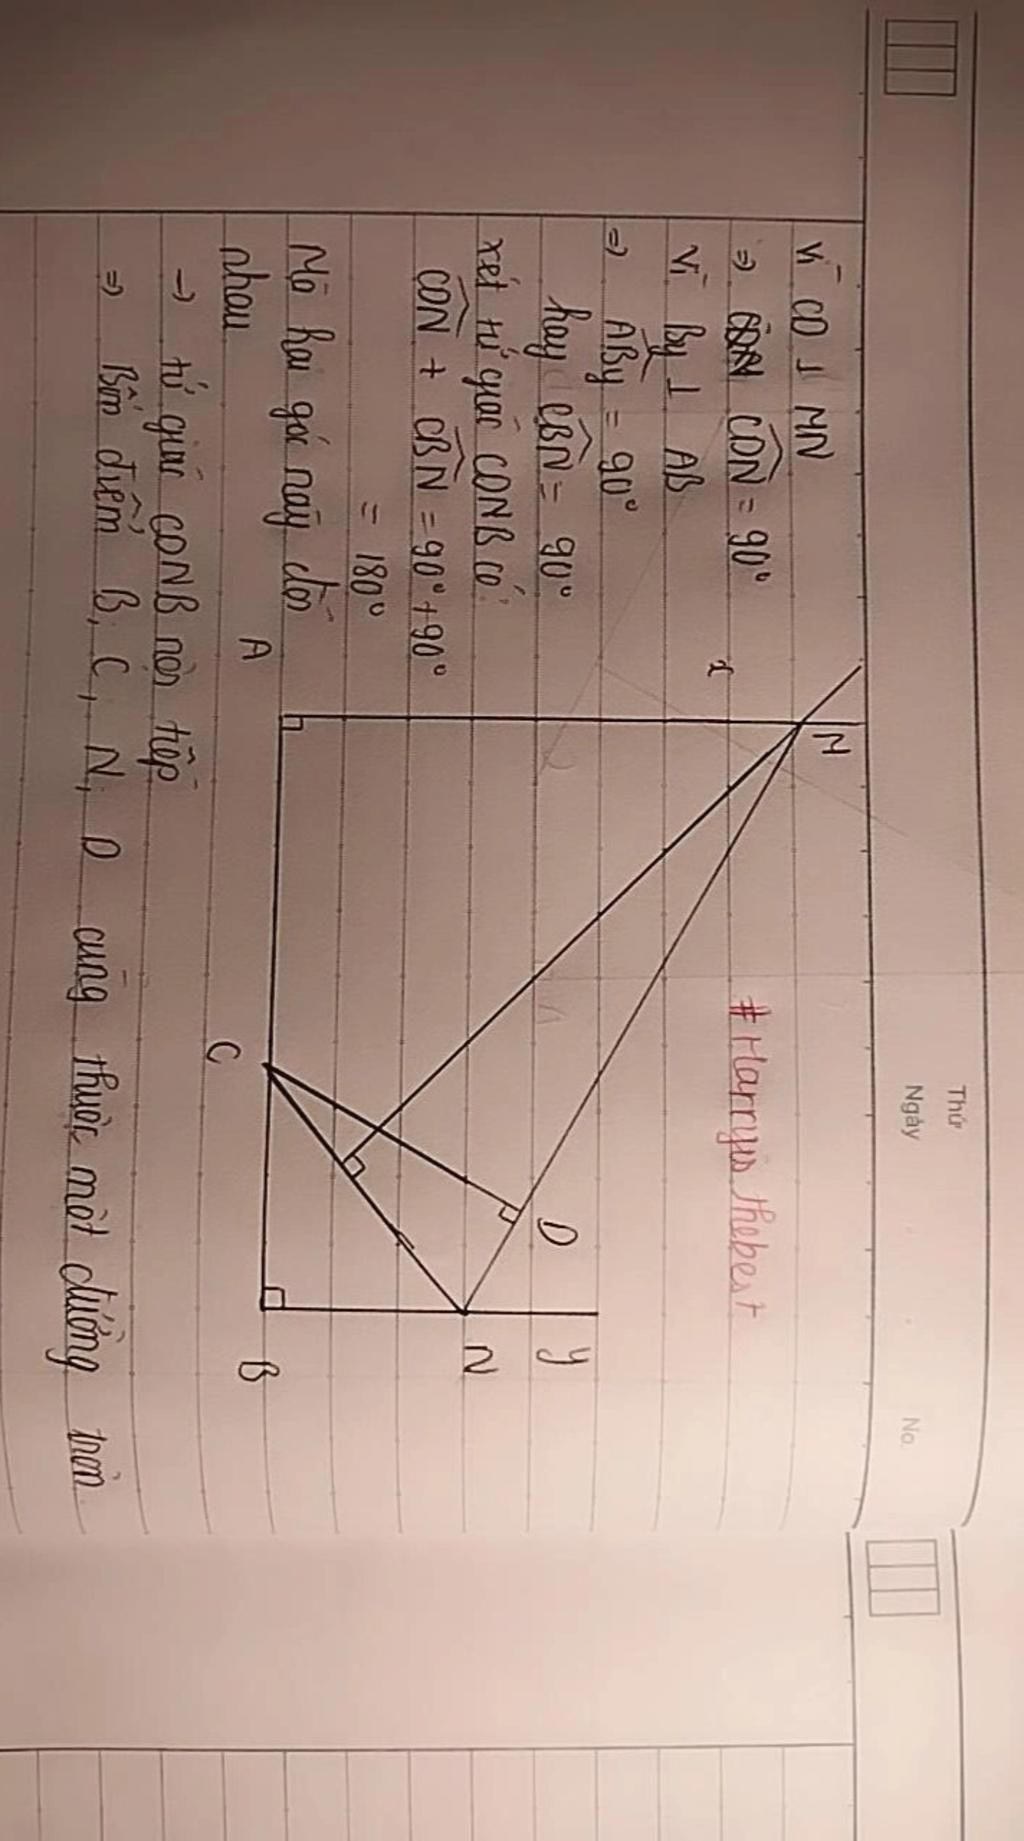 Thứ
Ngày
No.
Vì CD ⊥ MN
=> CDN = 90°
Vì By ⊥ AB
=> ABy = 90°
hay CBN = 90°
xét tứ giác CDNB có:
CDN + CBN = 90° + 90°
= 180°
Mà hai góc này đối
nhau
→ tứ giác CDNB nội tiếp
=> Bốn điểm B, C, N, D cùng thuộc một đường tròn.
#Harryis thebest
x
M
A
C
D
N
y
B